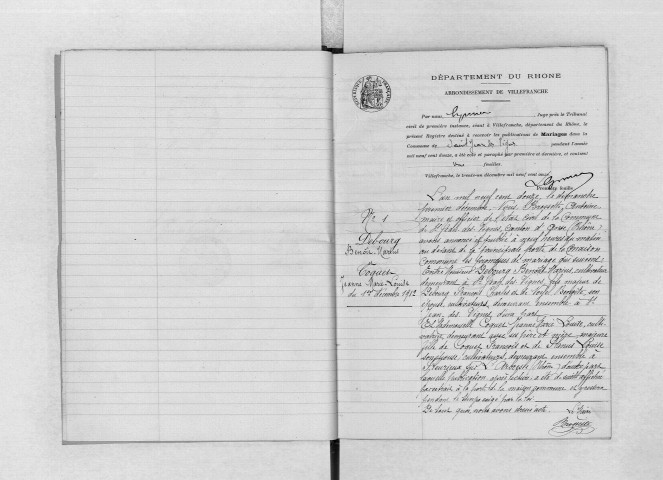 DÉPARTEMENT DU RHONE
ARRONDISSEMENT DE VILLEFRANCHE
Par nous Juge près le Tribunal
civil de première instance, séant à Villefranche, département du Rhône, le
présent Registre destiné à recevoir les publications de Mariages dans la
Commune de Saint Jean des Vignes pendant l'année
mil neuf cent douze, a été coté et paraphé par première et dernière, et contient
feuilles.
Villefranche, le trente-un décembre mil neuf cent onze.
Première feuille
N° 1
Debourg
Benoît Marius
et
Coquet
Jeanne Marie Louise
du 1er Décembre 1912
L'an mil neuf cent douze le dimanche
premier décembre, Nous Antoine
maire et officier de l'état civil de la Commune
de St Jean des Vignes, canton d (Rhône)
avons annoncé et publié à neuf heures du matin
au devant de la principale porte de la maison
commune les promesses de mariage qui suivent
Entre Monsieur Debourg Benoît Marius, cultivateur
demeurant à St Jean des Vignes, fils majeur de
Debourg François Charles et de Benoîte, son
épouse, cultivateurs, demeurant ensemble à St
Jean des Vignes d'une part
Et Mademoiselle Coquet Jeanne Marie Louise, culti-
vatrice, demeurant avec ses père et mère, majeure
fille de Coquet François et de Louise
son épouse cultivateurs, demeurant ensemble à
Fleurieux sur L'Arbresle Rhône, d'autre part
laquelle publication après lecture a été de suite affichée
à la porte de la maison commune et y restera
pendant le temps exigé par la loi.
De tout quoi nous avons dressé acte.
Le Maire